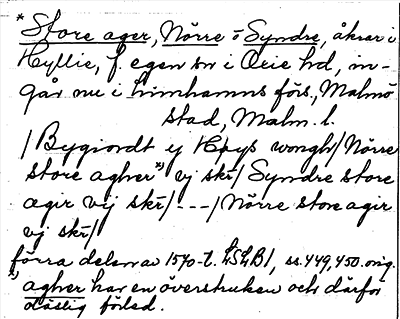 * Store ager, Nörre o Syndre, åkrar i
Hyllie, f. egen sn i Oxie hd, in-
går nu i Limhamns förs, Malmö
stad, Malm. l.
/Bygiordt ij Höys wongh/ Nörre
store agher*) vj skr/ Syndre store
agir vij skr/ --- / Nörre store agir
vj skr/
förra delen av 1570-t. LSLB1, ss. 449, 450. orig.
*) agher har en överstruken och därför
oläslig förled.